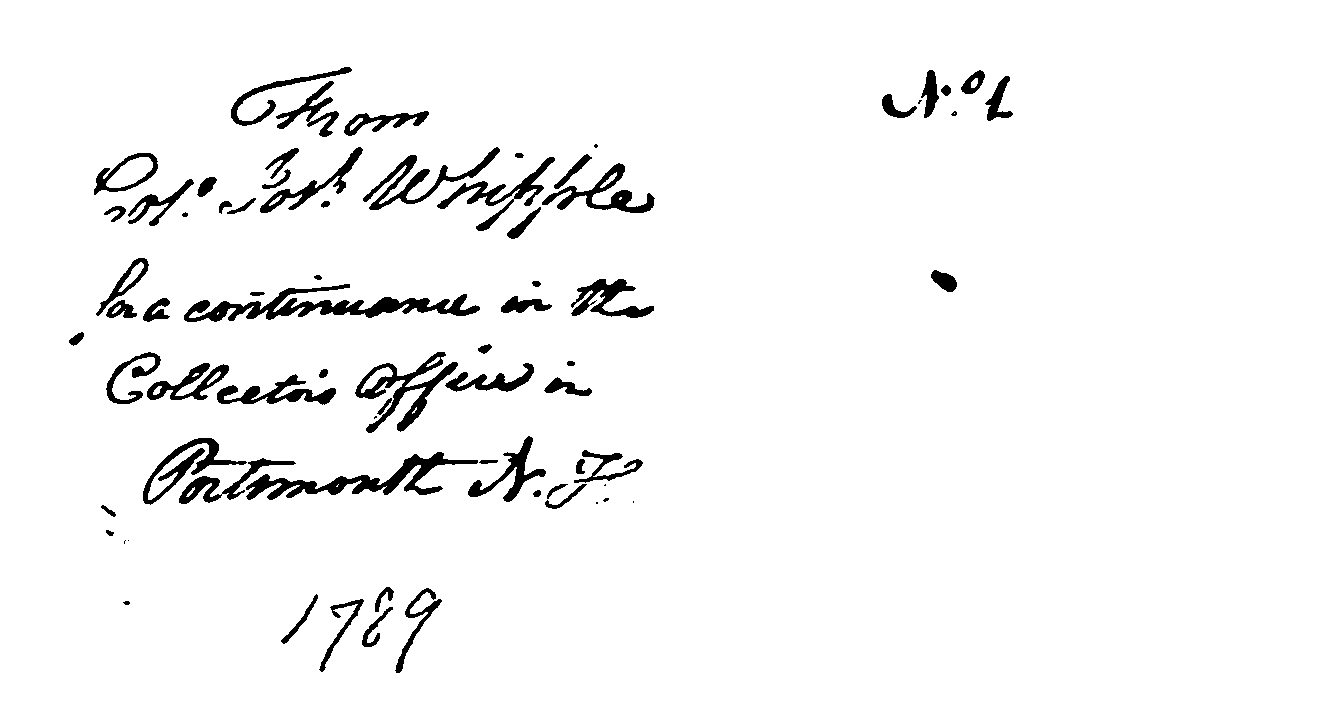 From
Colo. Josh. Whipple
for a continuance in the
Collectors Office in
Portsmouth N. H.
1789
No. 1